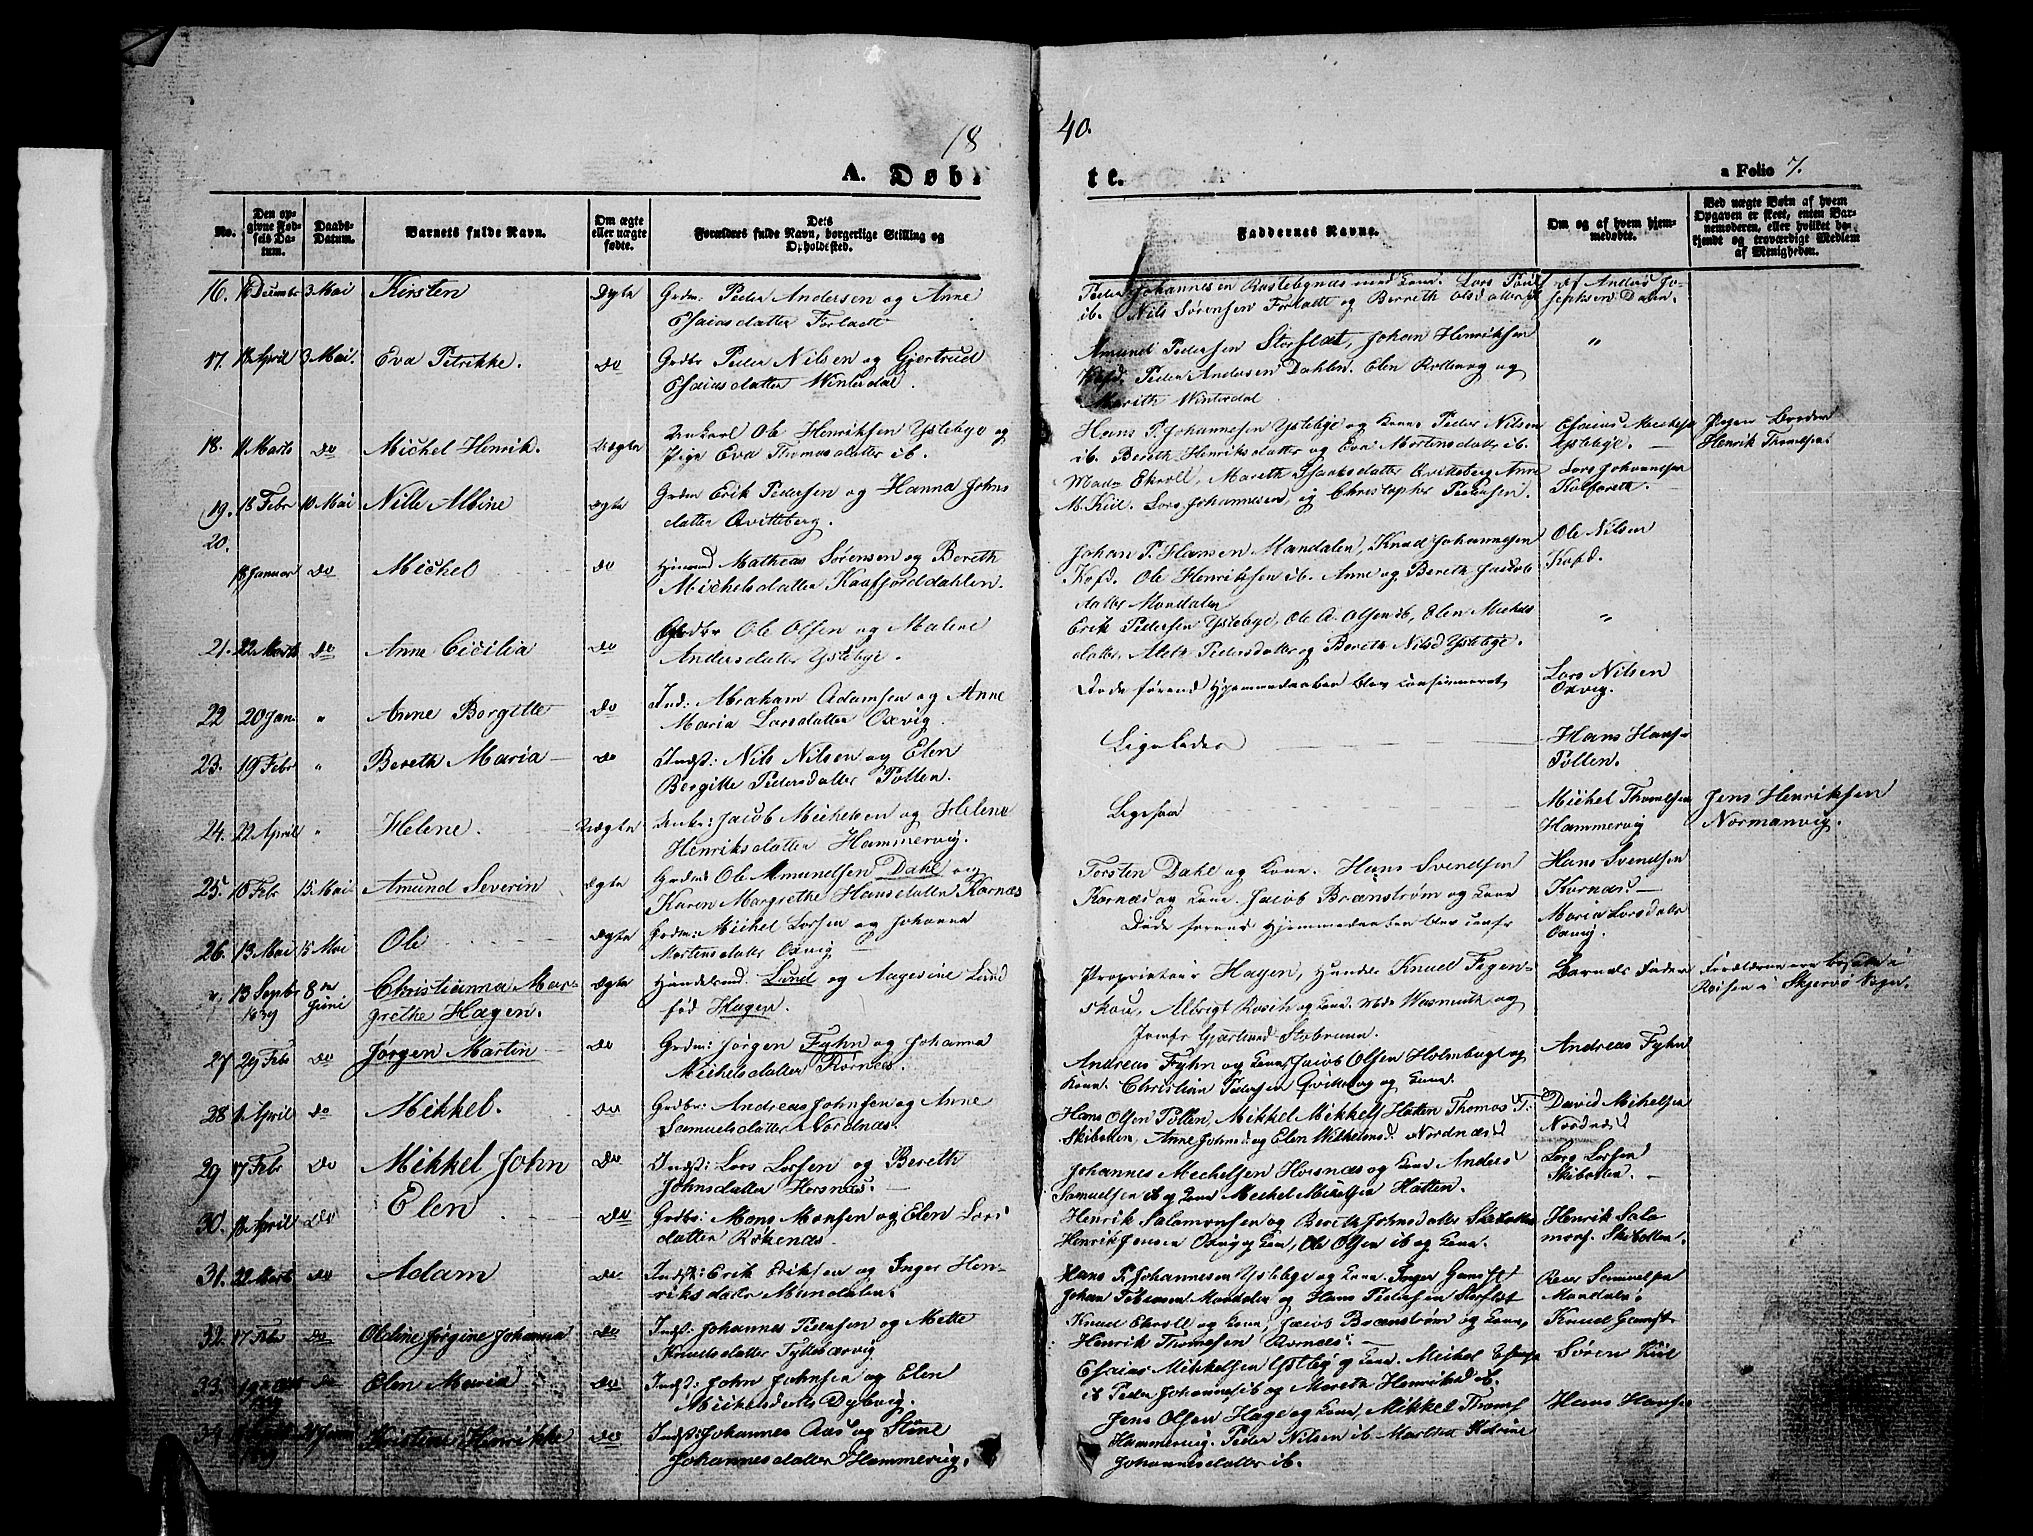 18 40.
A. Døbte.
a Folio 7.
No.
Den opgivne Fødsels Datum.
Daabs-Datum.
Barnets fulde Navn.
Om ægte eller uægte fødte.
Dets Forældres fulde Navn, borgerlige Stilling og Opholdssted.
Faddernes Navne.
Om og af hvem hjemmedøbte.
Ved uægte Børn af hvem Opgaven er skeet, enten Barnemoderen, eller hvilket bekjendt og troværdigt Medlem af Menigheden.
16. 16 December 3 Mai Kirsten Ægte Grdm: Peder Andersen og Anne
Esaiasdatter Forladt
Peder Johannesen med Kone. Lars
ib. Nils Sørensen Forladt og Berreth Olsdatter
Af Anders Josephsen Dalen.
17. 18 April 3 Mai. Eva Petrikke. Do Grdbr Peder Nilsen og Gjertrud
Esaiasdatter Winterdal.
Amund Pedersen Storslet, Johan Henriksen
Kofd. Peder Andersen Dahlen. Elen og
Mareth Winterdal
"
18. 11 Marts do Michel Henrik. Uægte Ungkarl Ole Henriksen Ysteby og
Pige Eva Thomasdatter ib.
Hans P. Johannesen Ystebye og Kone Peder Nilsen
ib. Bereth Henriksdatter og Eva Mortensdatter ib.
Esaias
Ystebye.
Pigens Broder
Henrik Thomesen
19. 18 Febr 10 Mai Nille Albine Ægte Grdm Erik Pedersen og Hanna Johns
datter Qvitteberg.
Mad. Ekroll, Mareth Isaksdatter Qvitteberg Anne
M. Kiil. Lars Johannesen, og Christopher Pedersen.
Lars Johannesen
20. 18 Januar Do Michel do Huusmd Mathias Sørensen og Bereth
Michelsdatter Kaafjorddahlen.
Johan P. Hansen Mandalen, Knud Johannesen
Kofd. Ole Henriksen ib. Anne og Bereth Jacobs
datter Mandalen
Ole Nilsen
Kofd.
21. 22 Marts Do Anne Cicilia do Grdbr Ole Olsen og Malene
Andersdatter Ystebye.
Erik Pedersen Ystebye, Ole A. Olsen ib, Elen Michels
datter, Pedersdatter og Bereth Nilsd Ystebye.
"
22 20 Jan. " Anne Borgitte Do Ind: Abraham Adamsen og Anne
Maria Larsdatter Oxvig.
Døde førend Hjemmedaaben blev confirmeret
Lars Nilsen
Oxvig.
23. 19 Febr " Bereth Maria do Indst: Nils Nilsen og Elen
Borgitte Pedersdatter Pollen.
Ligeledes
Hans Hans.
Pollen.
24. 22 April " Helene. Uægte Jacob Michelsen og Helene
Henriksdatter Hammervig.
Ligesaa
Michel Thomesen
Hammervig
Jens Henriksen
Normanvig.
25. 10 Febr 15 Mai Amund Severin Ægte Grdm: Ole Amundsen Dahl og
Karen Margrethe Hansdatter Kornæs
Torsten Dahl og Kone. Hans Svendsen
Kornæs og Kone. Jacob Brænstrøm og Kone
Hans Svendsen
Kornæs.
26. 13 Mai 15 Mai Ole Ægte Grdm: Michel Larsen og Johanna
Mortensdatter Oxvig
Døde førend Hjemmedaaben blev confr
Maria Larsdatter
Oxvig.
13 Septbr 1839 8de Juni Christianna Margrethe Hagen. Ægte Handelsmd. Lund og Aagesine Lund
fød Hagen.
Proprietair Hagen, Handls Knud Figenskou, Albrigt Rosch og Kone Wasmuth og
Jomfr Gjærtrud
Barnets Fader
Forældrene ere bosatte i
Reisen i Skjervø Sogn.
27 29 Febr Do Jørgen Martin do Grdm: Jørgen Fyhn og Johanna
Michelsdatter Hornæs.
Andreas Fyhn og Kone, Jacob Olsen Holmbugt og
Kone. Christian Pedersen og Kone.
Andreas Fyhn
28 1 April do Mikkel. Do Grdbr: Andreas Johnsen og Anne
Samuelsdatter Nordnæs.
Hans Olsen Pollen, Mikkel Mikkels Hatten Thomas T:
Skibotten. Anne Johnsd og Elen Wilhelmsd. Nordnæs
David Mikelsen
Nordnæs
29 17 Febr Do Mikkel John Do Indst: Lars Larsen og Bereth
Johnsdatter Horsnæs.
Johannes Mechelsen Horsnæs og Kone Anders
Samuelsen ib og Kone Mechel Mikelsen Hatten.
Lars Larsen
Skibotten
30. 12 April Do Elen Do Grdbr: Mons Monsen og Elen Lars
datter Røkenæs
Henrik Salamonsen og Bereth Johnsdatter Skibotten
Henrik Jensen Oxvig og Kone, Ole Olsen ib og Kone.
Henrik Salamons. Skibotten.
31. 22 Marts Do Adam Do Indst: Erik Eriksen og Inger Henriksdatter Mandalen.
Hans P. Johannesen Ystebye og Kone. Inger
Johan Tobiasen Mandalen og Hans Pedersen Storslet
Peder Samuelsen
Mandalen
32. 17 Febr Do Oldine Jørgine Johanna do Indst: Johannes Pedersen og Mette
Knudsdatter
Knud Ekroll og Kone, Jacob Brænstrøm og Kone,
Henrik Thomesen Kornæs.
Knud
33. Do Elen Maria Do Indst: John Johnsen og Elen
Mikelsdatter Dybvig.
Esaias Mikkelsen Ysteby og Kone. Mikel Esaias
ib Peder Johannes ib og Mareth Henriksd ib.
Søren Kiil
34. 1839 21 Juni Kristine Henrikke do Indst: Johannes Aas og Stine
Johannesdatter Hammervig.
Jens Olsen Hage og Kone, Mikkel Thoms
Hammervig. Peder Nilsen ib Marthe Katrine
Johannesdatter ib.
Hans Hansen